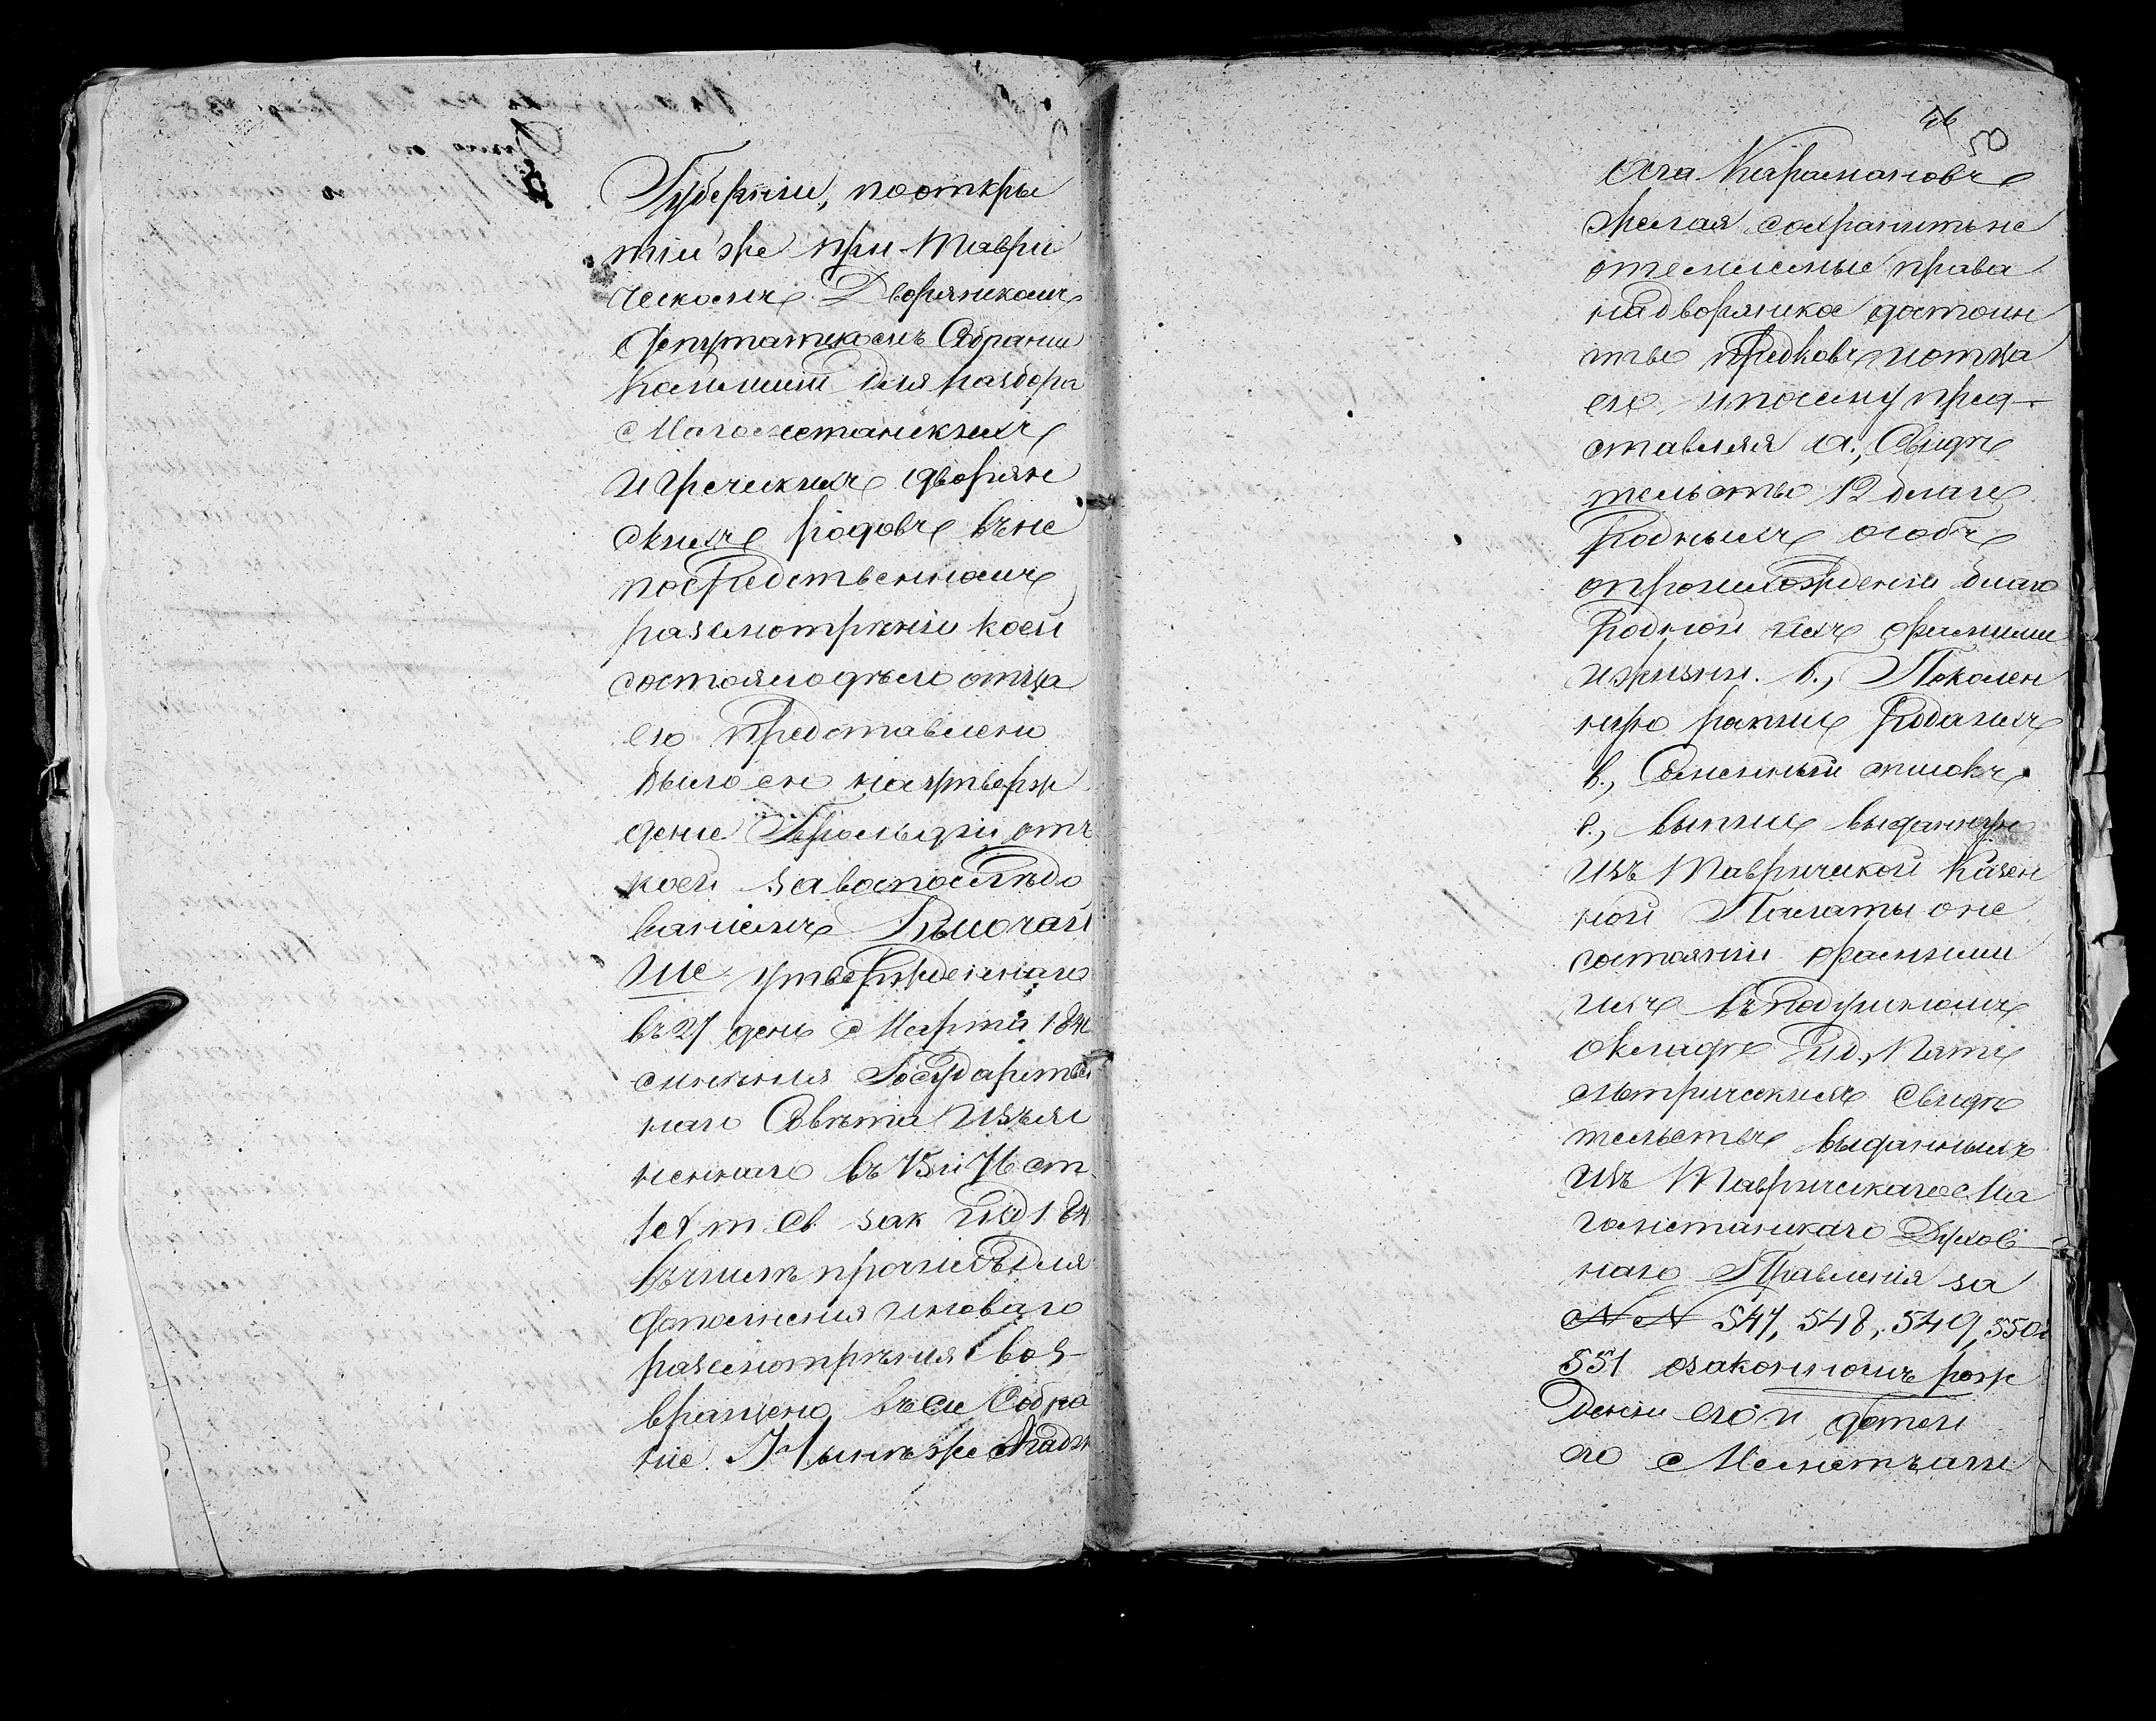 Губерніи, по откры
тіи же при Таври
ческомъ Дворянскомъ
Депутатскомъ Собраніи
Комисіи для разбора
Магометанскихъ
и Греческихъ дворян
скихъ родовъ въ не
посредственномъ
разсмотрѣніи коей
состояло дѣло отца
его представлено
было ею на утверж
деніе Герольдіи отъ
коей за воспослѣдо
ваніемъ Высочай
ше утвержденнаго
въ 27 день Марта 184
мнѣнія Государствен
наго Совѣта изъяс
неннаго въ 15 и 76 ст
т Св. зак изд 184
въ чисьлѣ прочихъ для
дополненія и новаго
разсмотрѣнія воз-
вращено въ сіе Собра
ніе. Нынѣ же
46
50
Ага Карамановъ
желая сохранить не
отъемлемые права
на дворянское достоин
ство предковъ и отца
его, и посему пред-
ставляя а., Свидѣ
тельство 12 благо
родныхъ особъ
о происхожденіи благо
родной ихъ фамиліи
и жизни. б., Поколен
ную рапись рода ихъ
в., Семенный списокъ
г., выпись выданную
изъ Таврической Казен
ной Палаты о не
состояніи фамиліи
ихъ въ подушномъ
окладѣ и д., Пять
метрическихъ свидѣ
тельствъ выданныхъ
изъ Таврическаго Ма
гометанскаго Духов-
наго Правленія за
NN 547, 548, 549, 550 и
551 о законномъ рож
деніи его и детей
его